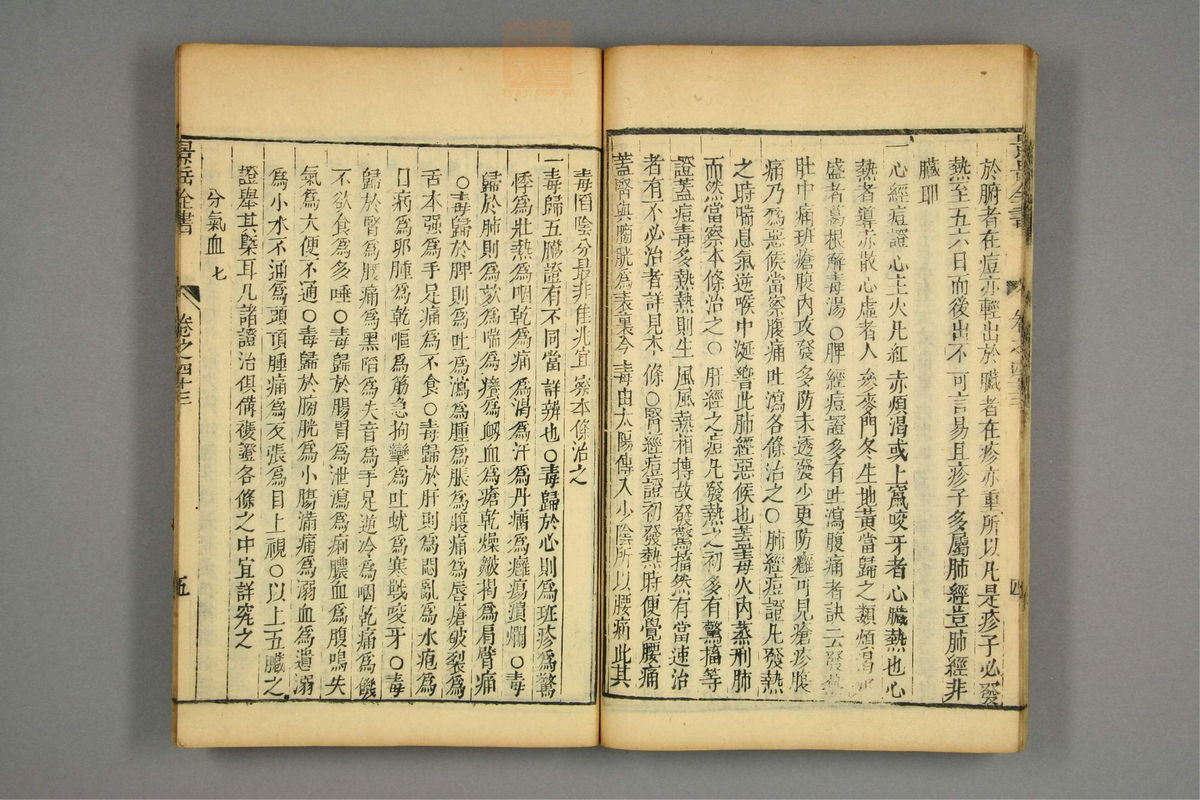 於腑者在痘亦輕出於臟者在疹亦重所以凡是疹子必發
熱至五六日而後出不可言易且疹子多屬肺經豈肺經非
臟耶
一心經痘證心主火凡紅赤煩渴或上竄咬牙者心臟熱也心
熱者導赤散心虛者人參麥門冬生地黃當歸之類煩渴
盛者葛根解毒湯○脾經痘證多有吐瀉腹痛者訣云發熱
肚中痛班瘡腹內攻發多防未透發少更防癰可見瘡疹腹
痛乃爲惡候當察腹痛吐瀉各條治之○肺經痘證凡發熱
之時喘息氣逆喉中涎響此肺經惡候也蓋毒火內蒸刑肺
而然當察本條治之○肝經之痘凡發熱之初多有驚搐等
證蓋痘毒多熱熱則生風風熱相搏故發驚搐然有當速治
者有不必治者詳見本條○腎經痘證初發熱時便覺腰痛
蓋腎與膀胱爲表裏今毒由太陽傳入少陰所以腰痛此其
景岳全書
卷之四十三
四
毒陷陰分最非佳兆宜察本條治之
一毒歸五臟證有不同當詳辨也○毒歸於心則爲班疹爲驚
悸爲壯熱爲咽乾爲痛爲渴爲汗爲丹瘤爲癰瘍潰爛○毒
歸於肺則爲欬爲喘爲癢爲衂血爲瘡乾燥皺揭爲肩臂痛
○毒歸於脾則爲吐爲瀉爲腫爲脹爲腹痛爲唇瘡破裂爲
舌本强爲手足痛爲不食○毒歸於肝則爲悶亂爲水疱爲
目病爲卵腫爲乾嘔爲筋急拘攣爲吐蚘爲寒戰咬牙○毒
歸於腎爲腰痛爲黑陷爲失音爲手足逆冷爲咽乾痛爲饑
不欲食爲多唾○毒歸於腸胃爲泄瀉爲痢膿血爲腹鳴失
氣爲大便不通○毒歸於膀胱爲小腸滿痛爲溺血爲遺溺
爲小水不通爲頭頂腫痛爲反張爲目上視○以上五臟之
證舉其槩耳凡諸證治俱備後證各條之中宜詳究之
分氣血 七
景岳全書
卷之四十三
五